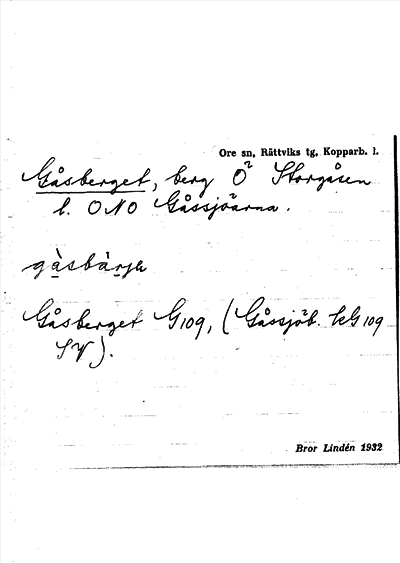 Ore sn, Rättviks tg, Kopparb. l.
Gåsberget, berg Ö² Storgåsen
l. ONO Gåssjöarna.
gàsbàrjẹ
Gåsberget G109, (Gåssjöb. kG109
SV).
Bror Lindén 1932